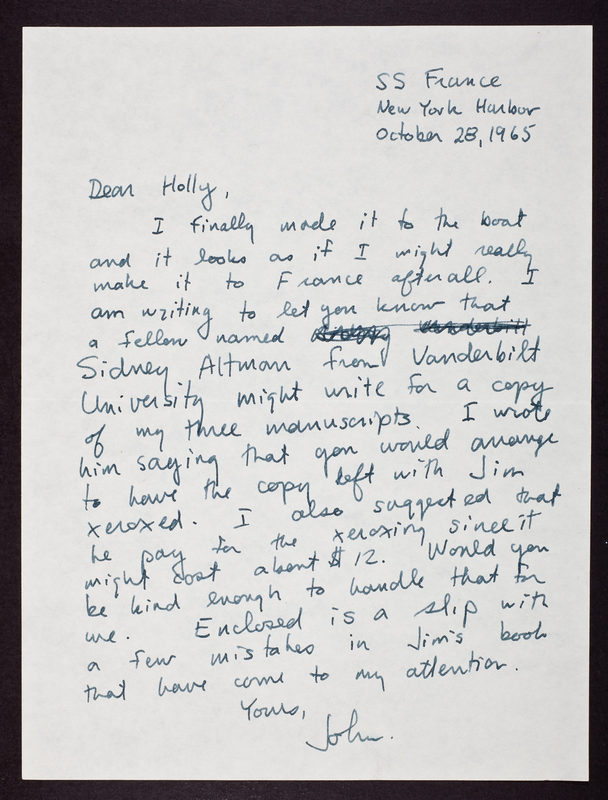 SS France
New York Harbor
October 28, 1965
Dear Holly,
I finally made it to the boat
and it looks as if I might really
make it to France after all. I
am writing to let you know that
a fellow named
Sidney Altman from Vanderbilt
University might write for a copy
of my three manuscripts. I wrote
him saying that you would arrange
to have the copy left with Jim
xeroxed. I also suggested that
he pay for the xeroxing since it
might cost about $12. Would you
be kind enough to handle that for
me. Enclosed is a slip with
a few mistakes in Jim's book
that have come to my attention.
Yours,
John.